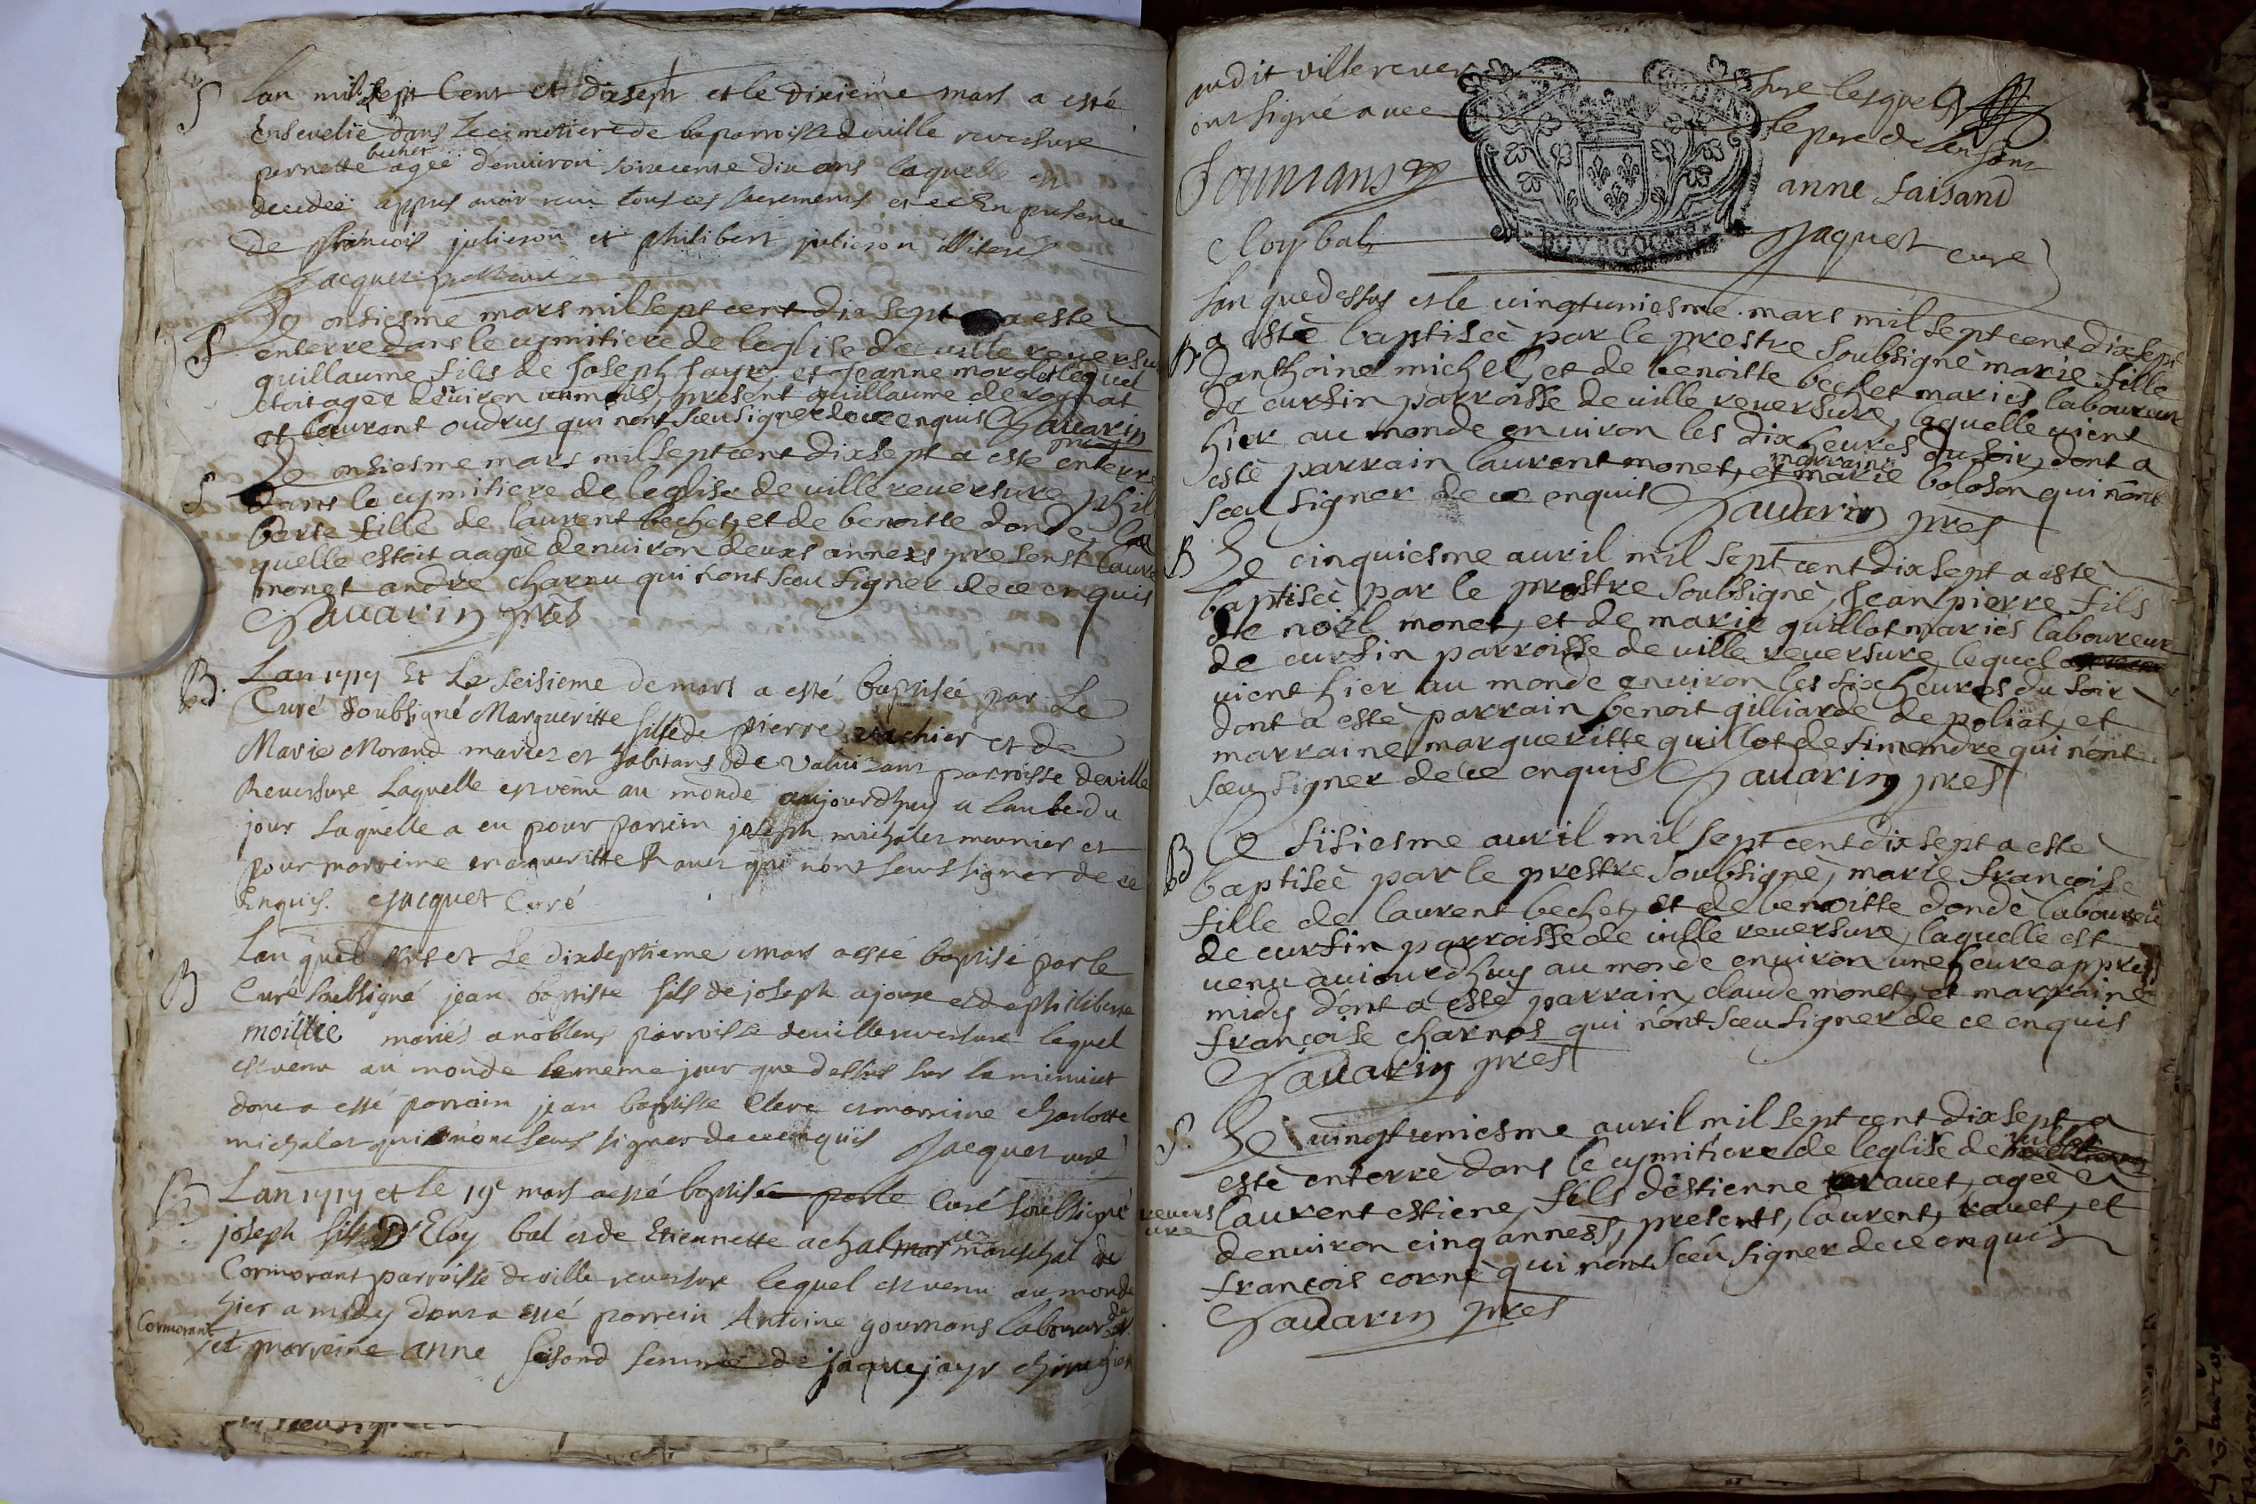 S
Lan mil sept Cent et dixsept et le dixieme mars a esté
Ensevelie dans le cimetiere de la parroisse de ville reversure
pernette bechet agée denviron soixcente dix ans laquelle est
decedée appres avoir reçu tous ces sacrements et ce En presence
de francois julieron et philibert julieron illiteres
Jacquet
S
Le onsiesme mars mil sept cent dix sept a este
enterre dans le cymitiere de leglise de ville reversu
guillaume fils de Joseph Jayr, et Jeanne morolet lequel
etoit agee denviron un mois, present guillaume derognat
et laurent oudrus qui nont sceu signer de ce enquis Savarin
pres
S
Le onsiesme mars mil sept cent dix sept a este enterre
dans le cymitiere de leglise de ville reversure phil
berte fille de laurent bechet, et de benoitte donde, la
quelle estoit aagée denviron deuxs annees presenst laure
monet andre charnu qui n'ont sceu signer de ce enquis
Savarin pres
Bd.
Lan 1717 Et Le seisieme de mars a esté baptisée par Le
Curé soubsigné Margueritte fille de pierre vachier et de
Marie Morand mariez et habitans de parroisse de ville
Reversure Laquelle est venue au monde aujourdhuy a laube du
jour laquelle a eu pour parrein joseph michalet meunier et
pour marreine margueritte qui nont seus signer de ce
Enquis. Jacquet Curé
B
Lan quel et Le dixseptieme mars a esté baptisé par le
Curé soubsigné jean baptiste fils de joseph ajoux et de philiberte
moillie mariés a nobleus parroisse de ville reversure lequel
est venu au monde le meme jour que dessus sur la minuict
dont a esté parrain jean baptiste Clerc et marreine charlotte
michalet qui n'ont seus signer de ce enquis Jacquet curé
B
Lan 1717 et le 19e mars a esté baptisée par le Curé soubsigné
joseph fils D'Eloy bal et de Etiennette achal mareschal de
Cormorant parroisse de ville reversure lequel est venu au monde
hier a midy dont a esté parrein Antoine gournans laboureur de
Cormorant
et marreine anne faisand femme de jaque jayr chirurgien
audit ville rever sure lesquels
ont signé avec le pere de lenfant
Journans anne faisand
Eloy bal Jaquet cure
BOURGOGNE
B.
Lan que dessus et le vingtuniesme mars mil sept cent dix sept
a esté baptiseé par le prestre soubsigné marie fille
danthoine michel, et de benoitte bechet mariés laboureur
de cursin parroisse de ville reversure, laquelle vient
hier au monde environ les dix heures du soir, dont a
esté parrain laurent monet, et marraine marie boloson qui n'ont
sceu signer de ce enquis Savarin pres
B
Le cinquiesme avril mil sept cent dix sept a esté
baptiseé par le prestre soubsigné, Jean pierre fils
de noël monet, et de marie guillot mariés laboureur
de cursin parroisse de ville reversure, lequel
vient hier au monde environ les dix heures du soir
dont a esté parrain benoit gilliarde de poliat, et
marraine margueritte guillot de simendre qui n'ont
sceu signer de ce enquis Savarin pres
Bd
Le sisiesme avril mil sept cent dix sept a este
baptiseé par le prestre soubsigné, marie françoise
fille de laurent bechet, et de benoitte dondé laboureur
de cursin parroisse de ville reversure, laquelle est
venu aujourdhuy au monde environ une heure appres
midy dont a esté parrain, claude monet, et marraine
françoise charnos qui n'ont sceu signer de ce enquis
Savarin pres
S.
Le vingtuniesme avril mil sept cent dix sept a
esté enterré dans le cymitiere de leglise de ville
revers
ure
laurent estiene, fils destienne ravet, agee
denviron cinq annees, presents, laurent, ravet, et
françois corné qui nont sceu signer de ce enquis
Savarin pres